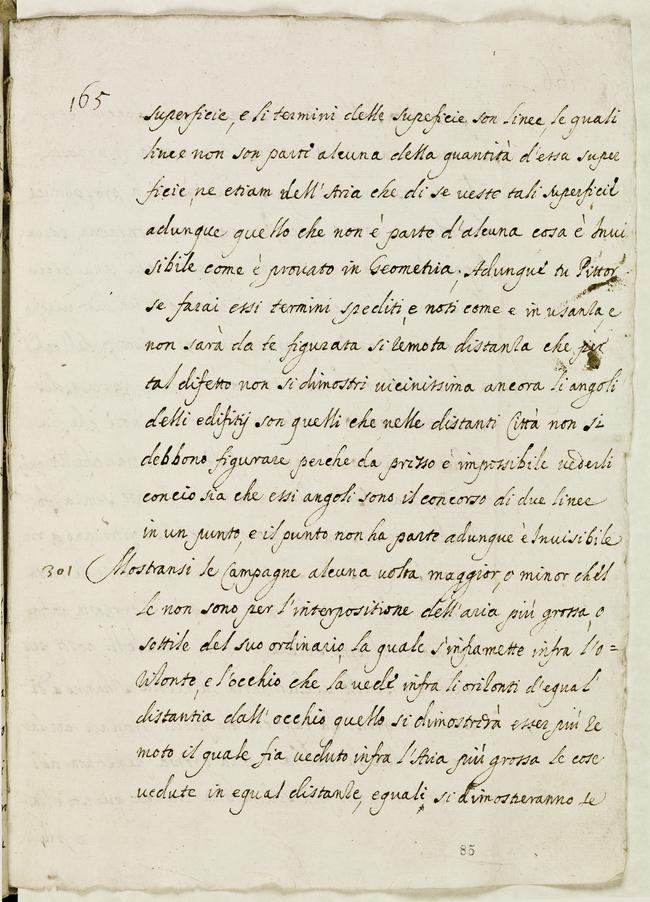 165
superficie, e li termini delle supeficie son linee, le quali
linee non son parte alcuna della quantità d'essa super
ficie, ne etiam dell'Aria che di se veste tali superficie
adunque quello che non è parte d'alcuna cosa è Invi
sibile come è provato in Geometria; Adunque tu Pittor
se farai essi termini spediti, e noti come e in usanza, e
non sarà da te figurata si remota distanza che per
tal difetto non si dimostri vicinissima ancora li angoli
delli edifitij son quelli che nelle distanti Città non si
debbono figurare perche da presso è impossibile vederli
concio sia che essi angoli sono il concorso di due linee
in un punto, e il punto non ha parte adunque è Invisibile
301 Mostransi le Campagne alcuna volta maggior, o minor ch'el
le non sono per l'interpositione dell'aria più grossa, o
sottile del suo ordinario, la quale s'inframette infra l'o=
rizonte, e l'occhio che la vede infra li orizonti d'egual
distantia dall'occhio quello si dimostrerà esser più re
moto il quale fia veduto infra l'Aria più grossa le cose
vedute in egual distanze, eguali, si dimosteranno le
85